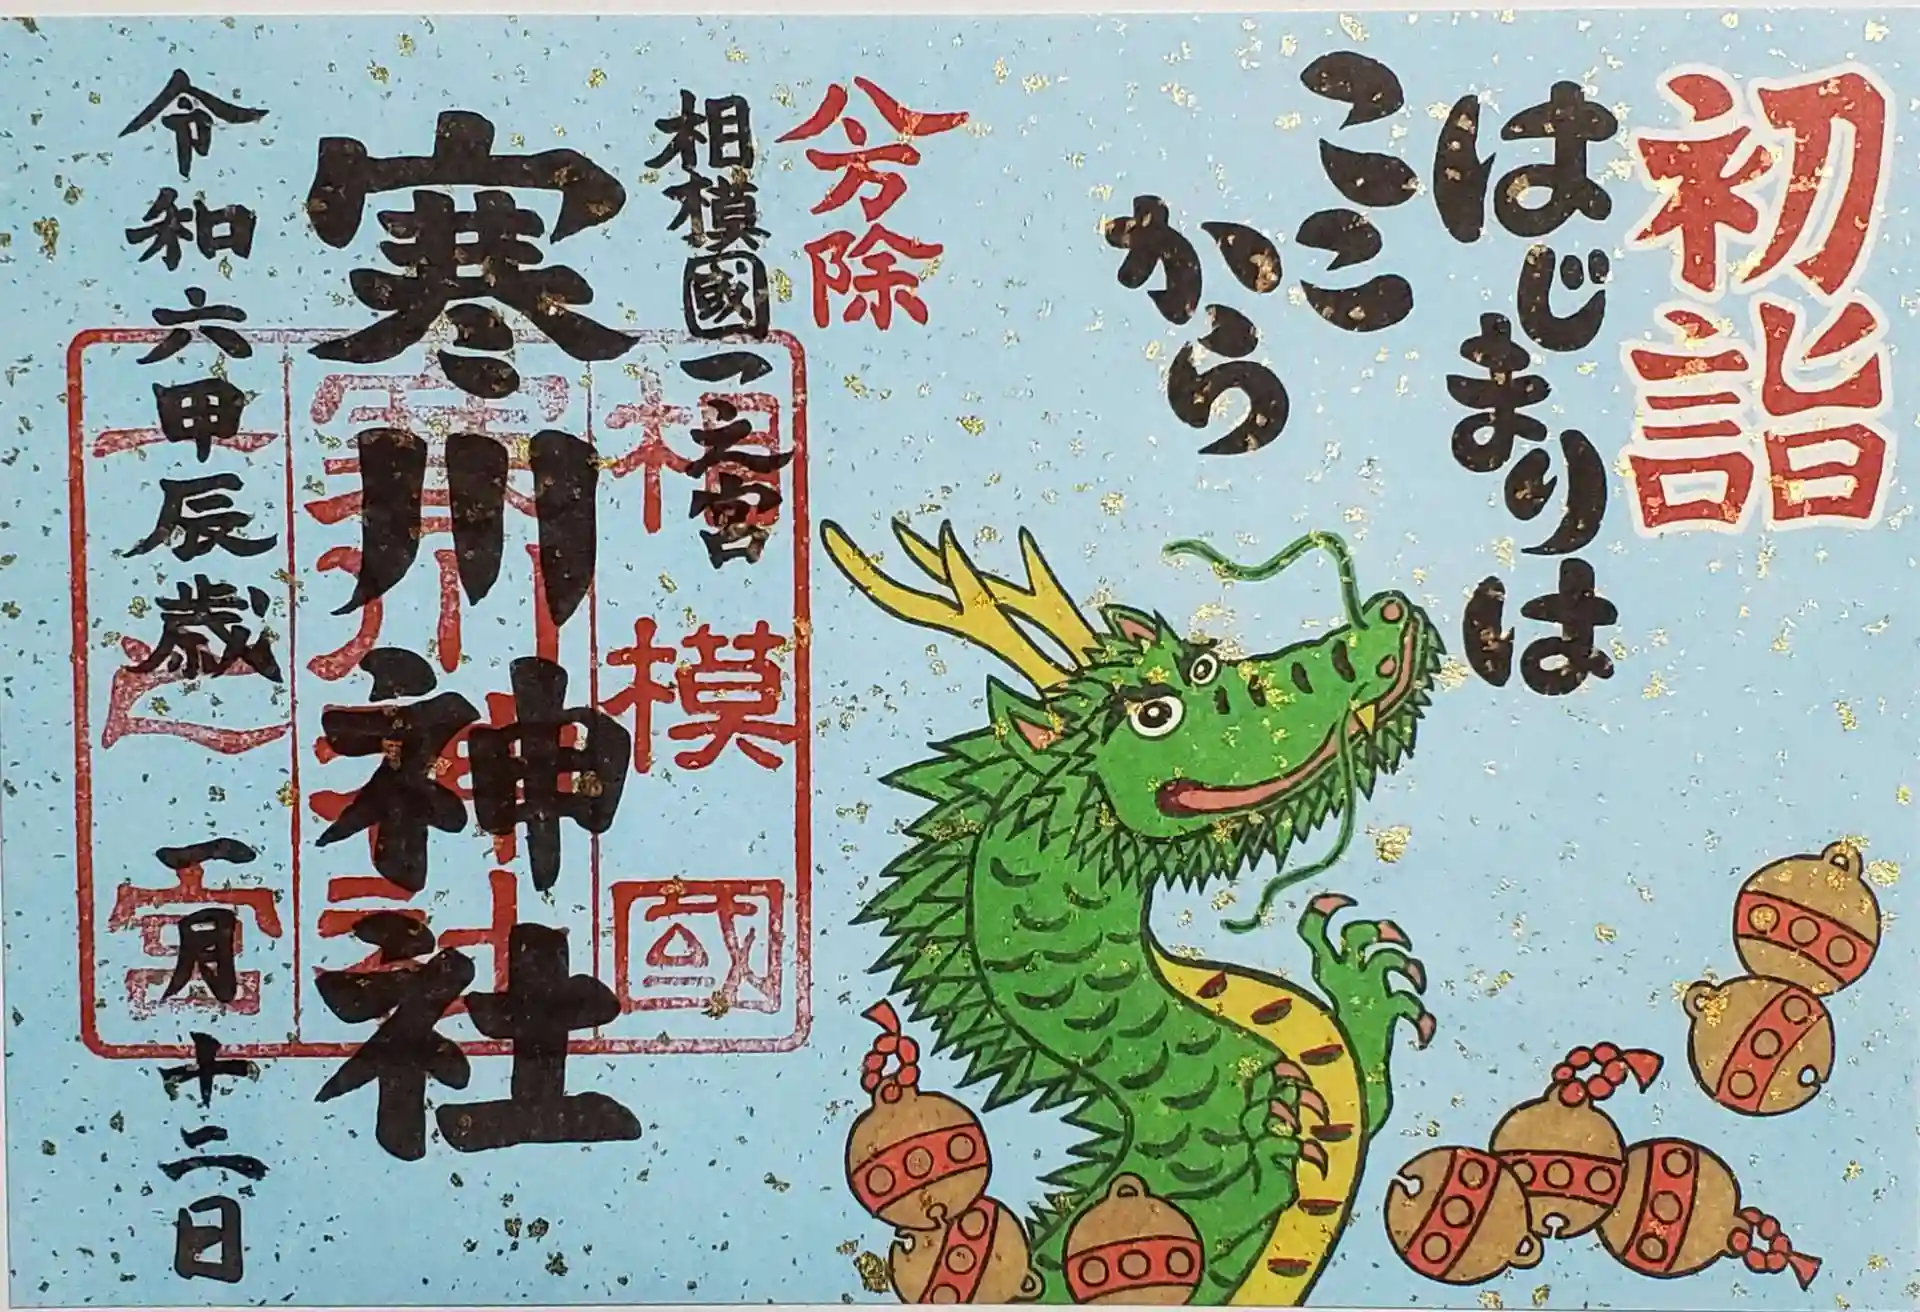 初詣
はじまりは
ここ
から
八方除
相模國一之宮
寒川神社
令和六甲辰歳 一月十二日
相模國
寒川神社
一之宮